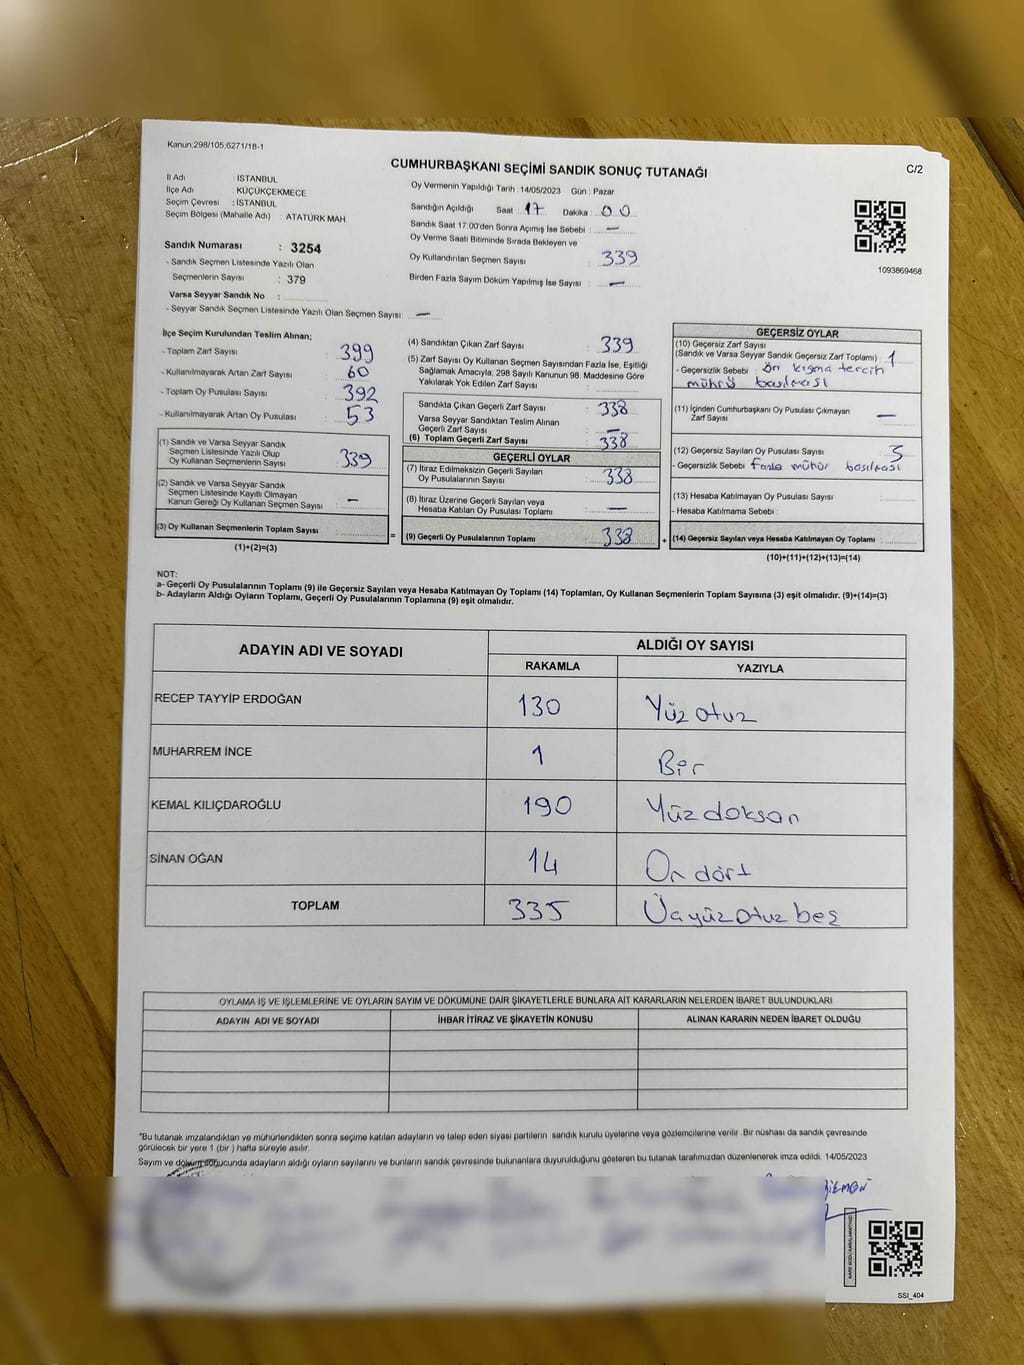 Kanun:298/105,6271/18-1
CUMHURBAŞKANI SEÇİMİ SANDIK SONUÇ TUTANAĞI
C/2
İl Adı : İSTANBUL
İlçe Adı : KÜÇÜKÇEKMECE
Seçim Çevresi : İSTANBUL
Seçim Bölgesi (Mahalle Adı) : ATATÜRK MAH.
Sandık Numarası : 3254
- Sandık Seçmen Listesinde Yazılı Olan
Seçmenlerin Sayısı : 379
Varsa Seyyar Sandık No :
- Seyyar Sandık Seçmen Listesinde Yazılı Olan Seçmen Sayısı: —
Oy Vermenin Yapıldığı Tarih : 14/05/2023 Gün : Pazar
Sandığın Açıldığı Saat : 17 Dakika : 00
Sandık Saat 17:00'den Sonra Açımış İse Sebebi : —
Oy Verme Saati Bitiminde Sırada Bekleyen ve
Oy Kullandırılan Seçmen Sayısı : 339
Birden Fazla Sayım Döküm Yapılmış İse Sayısı : —
1093869468
İlçe Seçim Kurulundan Teslim Alınan;
- Toplam Zarf Sayısı : 399
- Kullanılmayarak Artan Zarf Sayısı : 60
- Toplam Oy Pusulası Sayısı : 392
- Kullanılmayarak Artan Oy Pusulası : 53
(1) Sandık ve Varsa Seyyar Sandık
Seçmen Listesinde Yazılı Olup
Oy Kullanan Seçmenlerin Sayısı : 339
(2) Sandık ve Varsa Seyyar Sandık
Seçmen Listesinde Kayıtlı Olmayan
Kanun Gereği Oy Kullanan Seçmen Sayısı : —
(3) Oy Kullanan Seçmenlerin Toplam Sayısı :
(1)+(2)=(3)
=
(4) Sandıktan Çıkan Zarf Sayısı : 339
(5) Zarf Sayısı Oy Kullanan Seçmen Sayısından Fazla İse, Eşitliği
Sağlamak Amacıyla, 298 Sayılı Kanunun 98. Maddesine Göre
Yakılarak Yok Edilen Zarf Sayısı :
Sandıkta Çıkan Geçerli Zarf Sayısı : 338
Varsa Seyyar Sandıktan Teslim Alınan
Geçerli Zarf Sayısı : —
(6) Toplam Geçerli Zarf Sayısı : 338
GEÇERLİ OYLAR
(7) İtiraz Edilmeksizin Geçerli Sayılan
Oy Pusulalarının Sayısı : 338
(8) İtiraz Üzerine Geçerli Sayılan veya
Hesaba Katılan Oy Pusulası Toplamı : —
(9) Geçerli Oy Pusulalarının Toplamı : 338
+
GEÇERSİZ OYLAR
(10) Geçersiz Zarf Sayısı
(Sandık ve Varsa Seyyar Sandık Geçersiz Zarf Toplamı) 1
- Geçersizlik Sebebi : Ön kısma tercih
mührü basılması
(11) İçinden Cumhurbaşkanı Oy Pusulası Çıkmayan
Zarf Sayısı : —
(12) Geçersiz Sayılan Oy Pusulası Sayısı : 3
- Geçersizlik Sebebi Fazla mühür basılması
(13) Hesaba Katılmayan Oy Pusulası Sayısı :
- Hesaba Katılmama Sebebi :
(14) Geçersiz Sayılan veya Hesaba Katılmayan Oy Toplamı :
(10)+(11)+(12)+(13)=(14)
NOT:
a- Geçerli Oy Pusulalarının Toplamı (9) ile Geçersiz Sayılan veya Hesaba Katılmayan Oy Toplamı (14) Toplamları, Oy Kullanan Seçmenlerin Toplam Sayısına (3) eşit olmalıdır. (9)+(14)=(3)
b- Adayların Aldığı Oyların Toplamı, Geçerli Oy Pusulalarının Toplamına (9) eşit olmalıdır.
ADAYIN ADI VE SOYADI
ALDIĞI OY SAYISI
RAKAMLA YAZIYLA
RECEP TAYYİP ERDOĞAN 130 Yüz otuz
MUHARREM İNCE 1 Bir
KEMAL KILIÇDAROĞLU 190 Yüz doksan
SİNAN OĞAN 14 On dört
TOPLAM 335 Üçyüz otuz beş
OYLAMA İŞ VE İŞLEMLERİNE VE OYLARIN SAYIM VE DÖKÜMÜNE DAİR ŞİKAYETLERLE BUNLARA AİT KARARLARIN NELERDEN İBARET BULUNDUKLARI
ADAYIN ADI VE SOYADI İHBAR İTİRAZ VE ŞİKAYETİN KONUSU ALINAN KARARIN NEDEN İBARET OLDUĞU
*Bu tutanak imzalandıktan ve mühürlendikten sonra seçime katılan adayların ve talep eden siyasi partilerin sandık kurulu üyelerine veya gözlemcilerine verilir .Bir nüshası da sandık çevresinde
görülecek bir yere 1 (bir ) hafta süreyle asılır.
Sayım ve döküm sonucunda adayların aldığı oyların sayılarını ve bunların sandık çevresinde bulunanlara duyurulduğunu gösteren bu tutanak tarafımızdan düzenlenerek imza edildi. 14/05/2023
KARE KODU KARALAMAYINIZ!
SSI_404